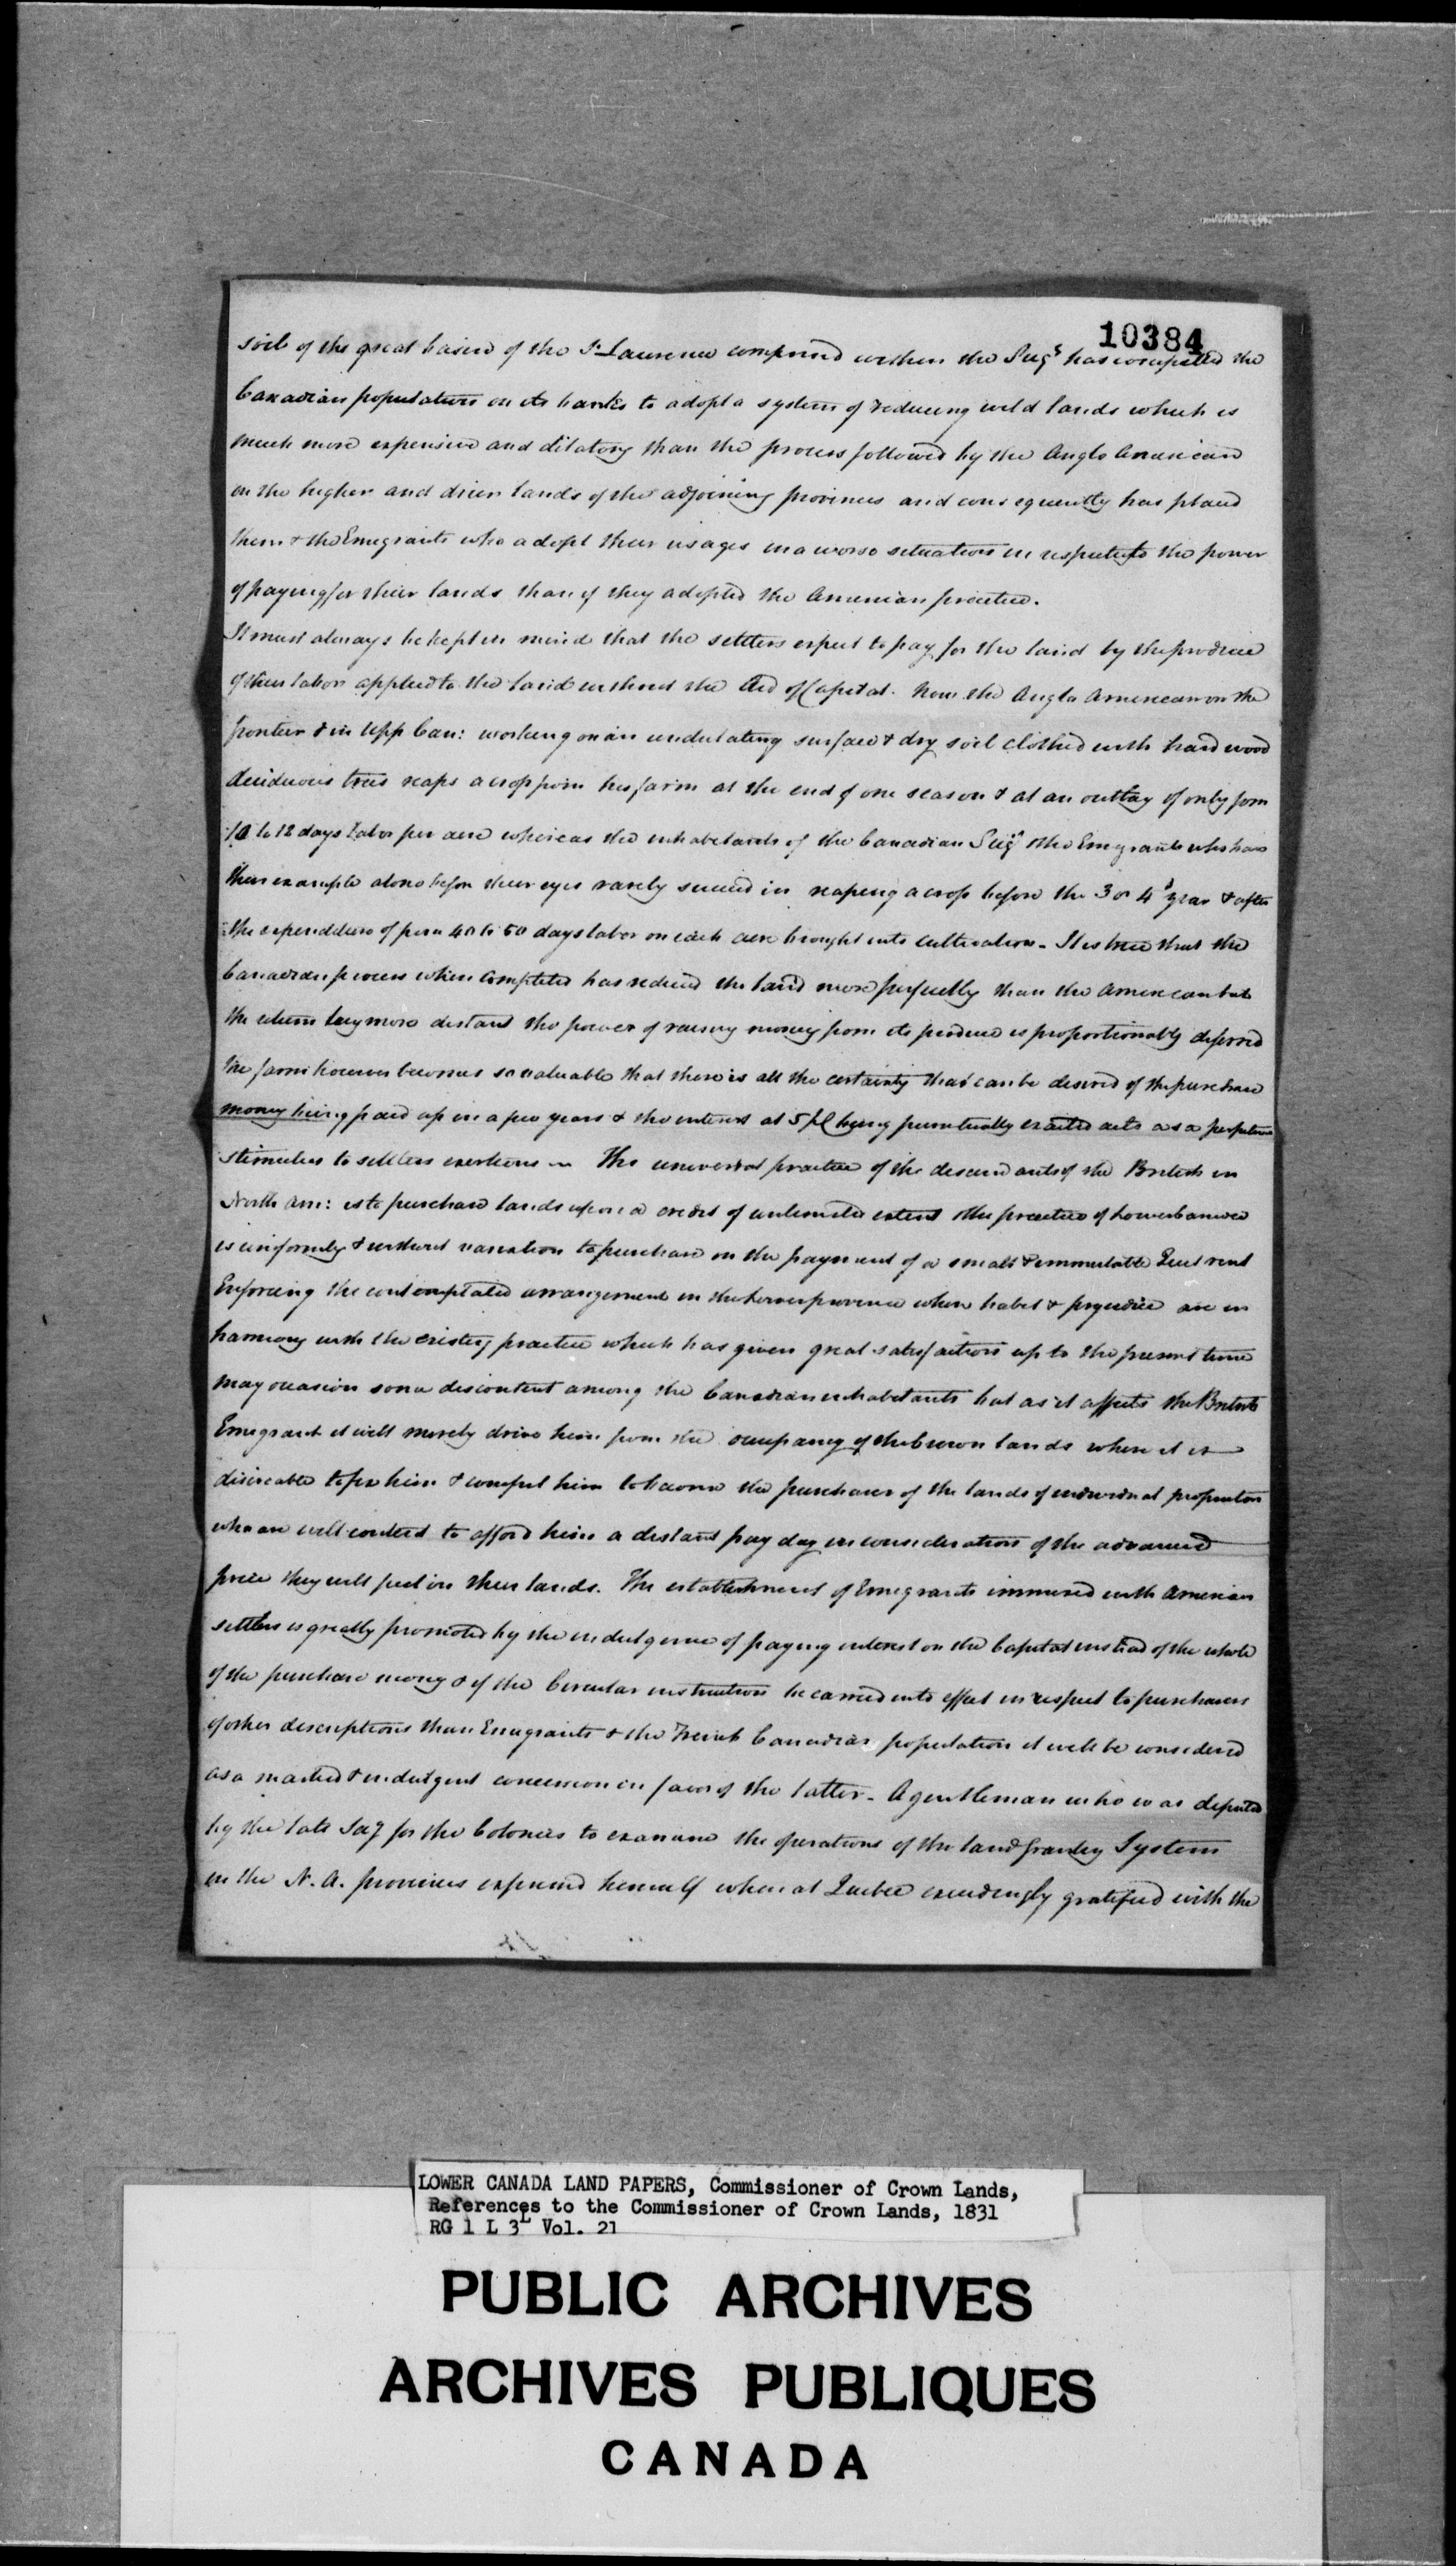 10384
soil of the great basin of the St Laurence comprised within the Seigs has compelled the
Canadian population on its banks to adopt a system of reducing wild lands which is
much more expensive and dilatory than the process followed by the Anglo American
on the higher and drier lands of the adjoining provinces and consequently has placed
them & the Emigrants who adopt their usages in a worse situation in respect to the power
of paying for their lands than if they adopted the American practice.
It must always be kept in mind that the settlers expect to pay for the land by the produce
of their labor applied to the land without the aid of Capital. Now the Anglo American on the
frontier & in Upp Can: working on an undulating surface & dry soil clothed with hard wood
deciduous trees reaps a crop from his farm at the end of one season & at an outlay of only from
10 to 12 days labor per acre whereas the inhabitants of the Canadian Seigs & the Emigrants who have
their example alone before their eyes rarely succeed in reaping a crop before the 3 or 4th year & after
the expenditure of from 40 to 50 days labor on each acre brought into cultivation - It is true that the
Canadian process when completed has reduced the land more perfectly than the American but
the return being more distant the power of raising money from its produce is proportionably deferred
The farm however becomes so valuable that there is all the certainty that can be desired of the purchase
money being paid up in a few years & the interest at 5 p C being punctually exacted acts as a perpetual
stimulus to settlers exertions - The universal practice of the descendants of the British in
North Am: is to purchase lands upon a credit of unlimited extent the practice of Lower Canada
is uniformly & without variation to purchase on the payment of a small & immutable Quit rent
Enforcing the contemplated arrangement in the Lower province where habit & prejudice are in
harmony with the existing practice which has given great satisfaction up to the present time
may occasion some discontent among the Canadian inhabitants but as it affects the British
Emigrant it will merely drive him from the occupancy of the Crown lands where it is
desireable to fix him & compel him to become the purchaser of the lands of individual proprietors
who are well content to afford him a distant pay day in consideration of the advanced
price they will put on their lands. The establishment of Emigrants immixed with American
settlers is greatly promoted by the indulgence of paying interest on the Capital instead of the whole
of the purchase money & if the Circular instructions be carried into effect in respect to purchasers
of other descriptions than Emigrants & the French Canadian population it will be considered
as a marked & indulgent concession in favor of the latter - A gentleman who was deputed
by the late Secy for the Colonies to examine the operations of the land Granting System
in the N. A. provinces expressed himself when at Quebec exceedingly gratified with the
LOWER CANADA LAND PAPERS, Commissioner of Crown Lands,
References to the Commissioner of Crown Lands, 1831
RG 1 L 3L Vol. 21
PUBLIC ARCHIVES
ARCHIVES PUBLIQUES
CANADA